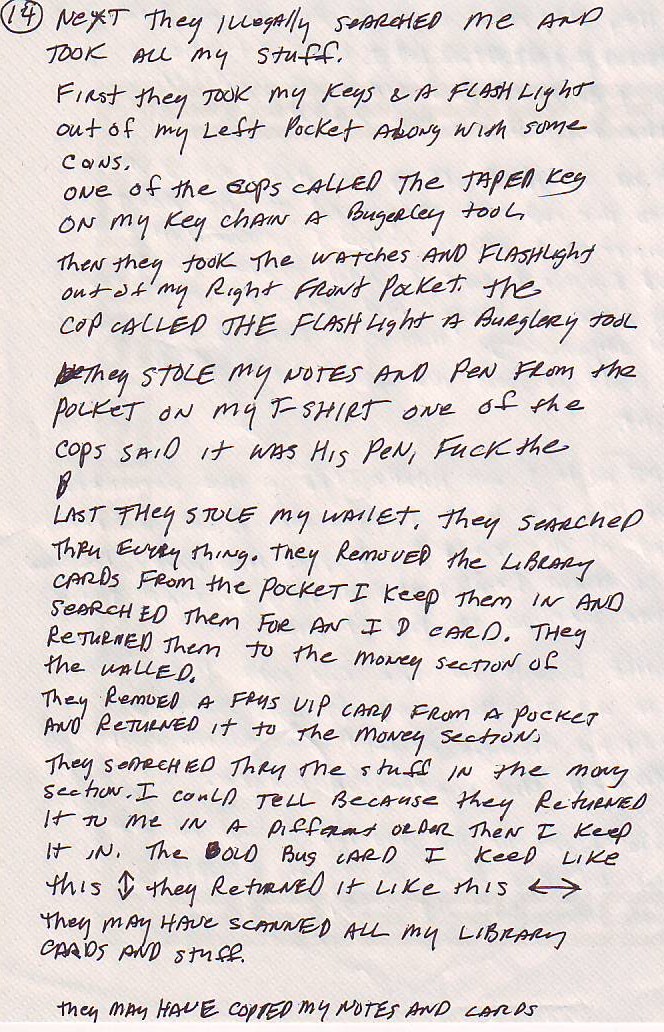 14 Next they illegally searched me and
took all my stuff.
First they took my keys & a flash light
out of my left pocket along with some
cons.
one of the cops called the taped key
on my key chain a Bugerley tool,
then they took the watches and flashlight
out of my right front pocket. the
cop called the flash light a Burglery tool
they stole my notes and pen from the
pocket on my T-shirt one of the
cops said it was his pen, Fuck the
P
Last they stole my wallet. they searched
thru every thing. they removed the library
cards from the pocket I keep them in and
searched them for an I D card. they
returned them to the money section of
the walled.
they remved a Frys VIP card from a pocket
and returned it to the money section.
they searched thru the stuff in the mony
section. I could tell because they returned
it to me in a different order then I keep
it in. The Gold Bug card I keep like
this ↕ they returned it like this ↔
they may have scanned all my library
cards and stuff.
they may have copied my notes and cards